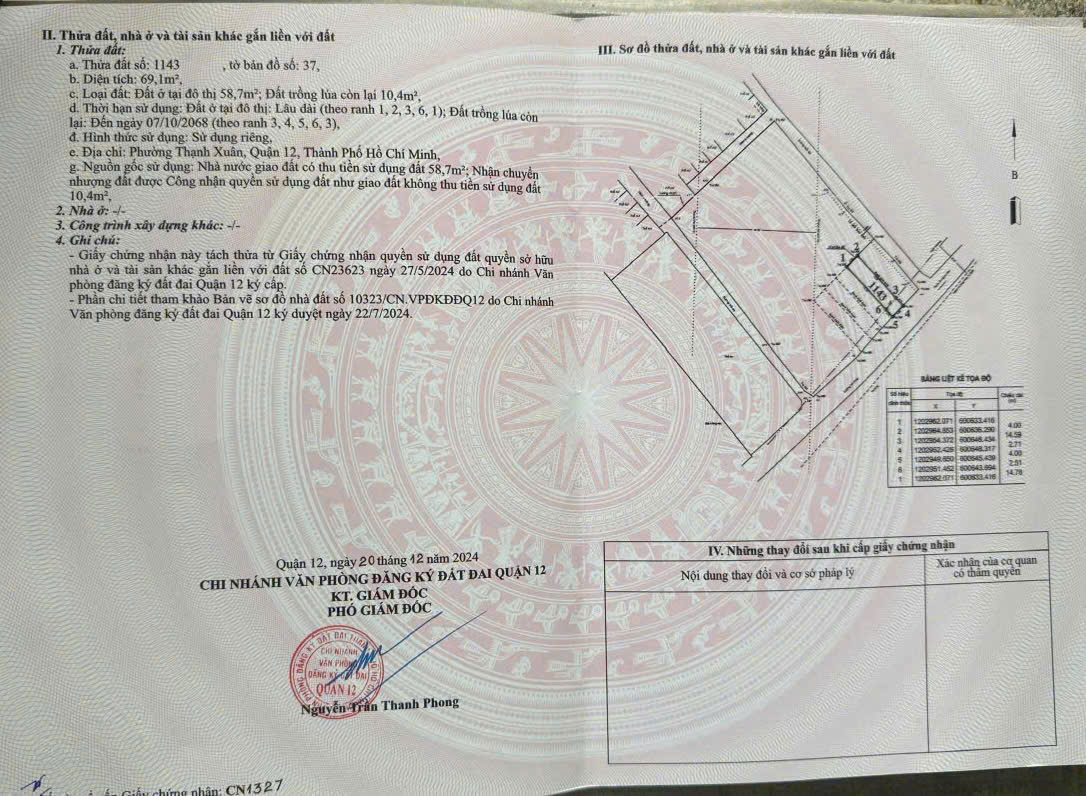 II. Thửa đất, nhà ở và tài sản khác gắn liền với đất
1. Thửa đất:
a. Thửa đất số: 1143 , tờ bản đồ số: 37,
b. Diện tích: 69,1m²,
c. Loại đất: Đất ở tại đô thị 58,7m²; Đất trồng lúa còn lại 10,4m²,
d. Thời hạn sử dụng: Đất ở tại đô thị: Lâu dài (theo ranh 1, 2, 3, 6, 1); Đất trồng lúa còn
lại: Đến ngày 07/10/2068 (theo ranh 3, 4, 5, 6, 3),
đ. Hình thức sử dụng: Sử dụng riêng,
e. Địa chỉ: Phường Thạnh Xuân, Quận 12, Thành Phố Hồ Chí Minh,
g. Nguồn gốc sử dụng: Nhà nước giao đất có thu tiền sử dụng đất 58,7m²; Nhận chuyển
nhượng đất được Công nhận quyền sử dụng đất như giao đất không thu tiền sử dụng đất
10,4m²,
2. Nhà ở: -/-
3. Công trình xây dựng khác: -/-
4. Ghi chú:
- Giấy chứng nhận này tách thửa từ Giấy chứng nhận quyền sử dụng đất quyền sở hữu
nhà ở và tài sản khác gắn liền với đất số CN23623 ngày 27/5/2024 do Chi nhánh Văn
phòng đăng ký đất đai Quận 12 ký cấp.
- Phần chi tiết tham khảo Bản vẽ sơ đồ nhà đất số 10323/CN.VPĐKĐĐQ12 do Chi nhánh
Văn phòng đăng ký đất đai Quận 12 ký duyệt ngày 22/7/2024.
Quận 12, ngày 20 tháng 12 năm 2024
CHI NHÁNH VĂN PHÒNG ĐĂNG KÝ ĐẤT ĐAI QUẬN 12
KT. GIÁM ĐỐC
PHÓ GIÁM ĐỐC
CHI NHÁNH
VĂN PHÒNG
ĐĂNG KÝ ĐẤT ĐAI
QUẬN 12
Nguyễn Trần Thanh Phong
Giấy chứng nhận: CN1327
III. Sơ đồ thửa đất, nhà ở và tài sản khác gắn liền với đất
B
1
2
3
1143
6
4
5
BẢNG LIỆT KÊ TỌA ĐỘ
Số hiệu đỉnh thửa Tọa độ Chiều dài (m)
X Y
1 1202962.071 600633.416
4.00
2 600636.290
14.59
3 600646.434
2.71
4 600648.317
4.00
5 600645.439
2.51
6 600643.694
14.78
1 1202962.071 600633.416
IV. Những thay đổi sau khi cấp giấy chứng nhận
Nội dung thay đổi và cơ sở pháp lý
Xác nhận của cơ quan
có thẩm quyền